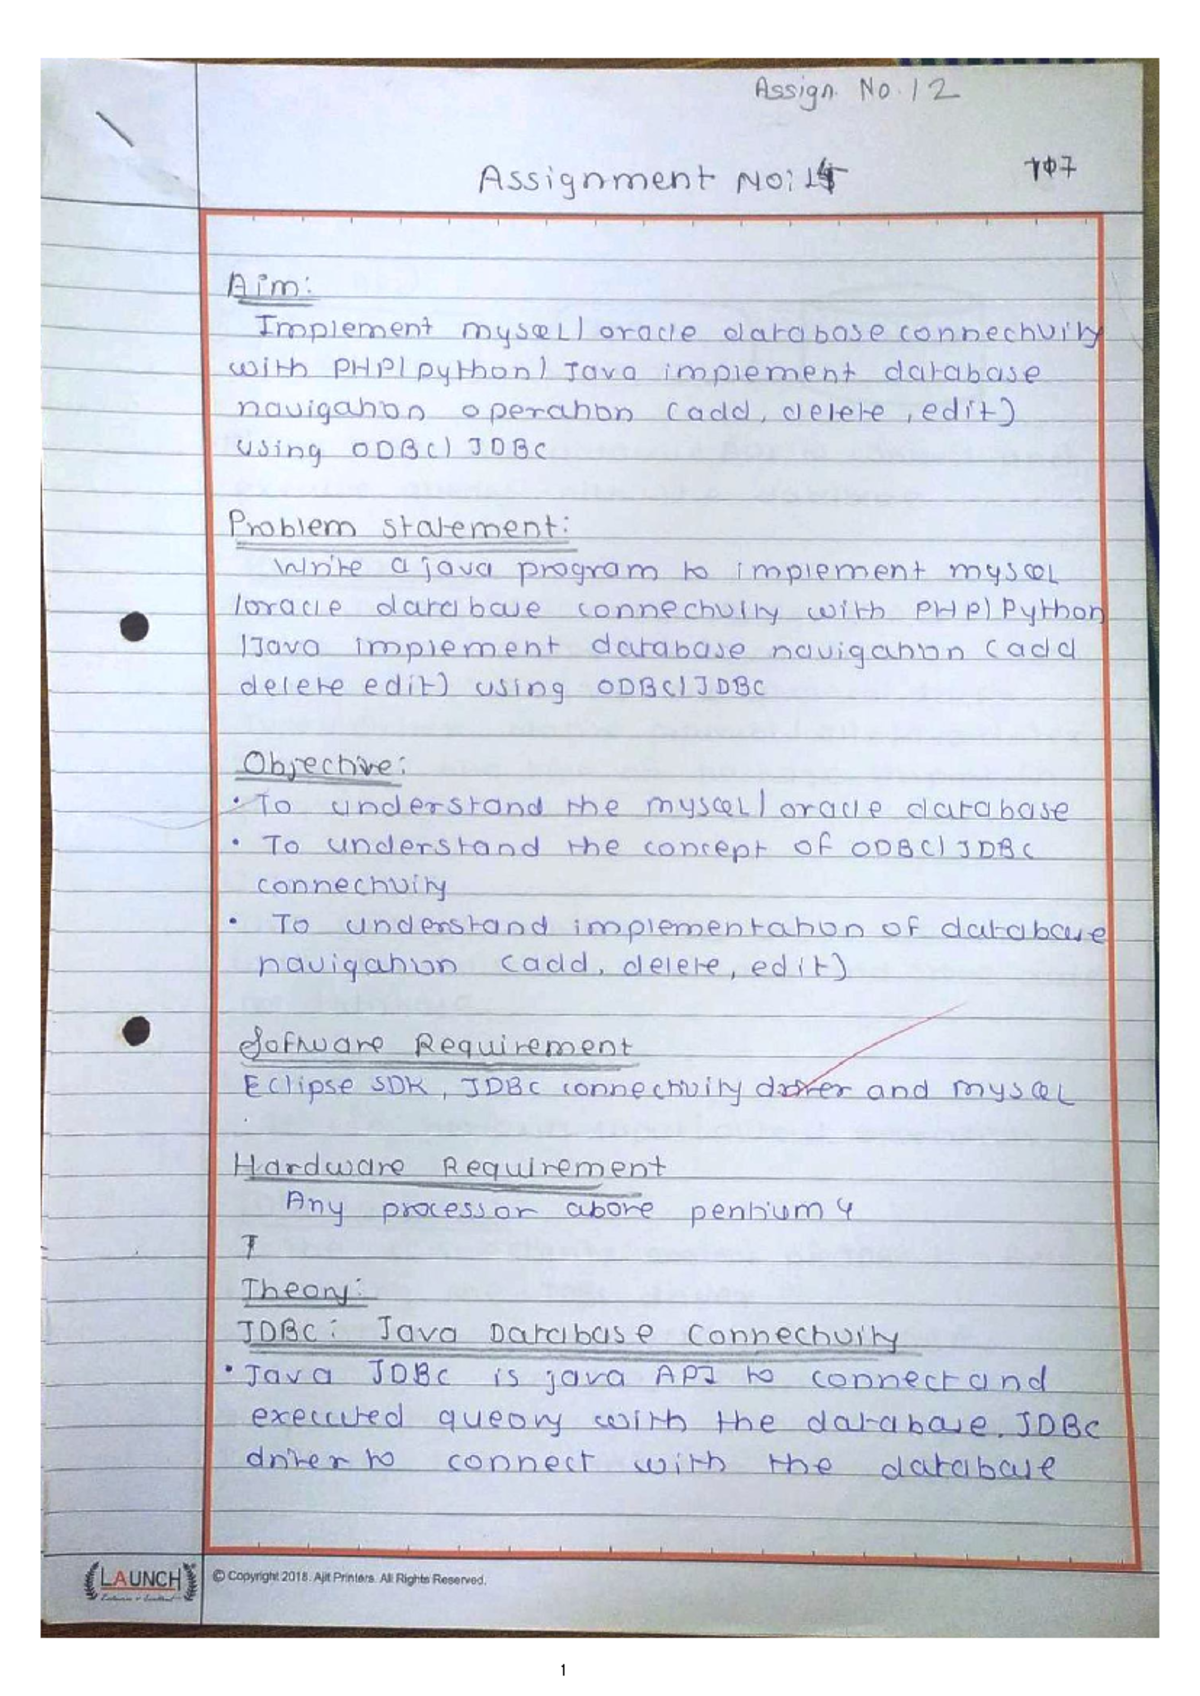 Assign. No. 12
Assignment No:
Aim:
Implement mysQL/oracle database connectivity
with PHP/python/Java implement database
navigation operation (add, delete, edit)
using ODBC/JDBC
Problem statement:
Write a java program to implement mysQL
/oracle database connectivity with PHP/Python
/Java implement database navigation (add
delete edit) using ODBC/JDBC
Objective:
• To understand the mysQL/oracle database
• To understand the concept of ODBC/JDBC
connectivity
• To understand implementation of database
navigation (add, delete, edit)
Software Requirement
Eclipse SDK, JDBC connectivity driver and mysQL
Hardware Requirement
Any processor above pentium 4
T
Theory:
JDBC: Java Database Connectivity
• Java JDBC is java API to connect and
executed queory with the database. JDBC
driver to connect with the database
LAUNCH
© Copyright 2018. Ajit Printers. All Rights Reserved.
1